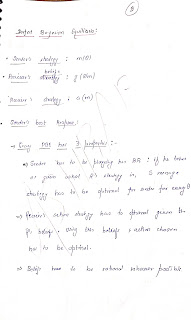 Perfect Bayesian Equilibria:
• Sender's strategy : m(θ)
beliefs
• Receiver's strategy : μ(θ|m)
Receiver's strategy : a(m)
• Sender's best Response:
⇒ Every PBE has 3 properties :-
⇒ Sender has to be playing his BR : if he takes
as given what R's strategy is, S message
strategy has to be optimal for sender for every θ
⇒ Receiver's action strategy has to optimal given the
R's beliefs. using his beliefs, action chosen
has to be optimal.
⇒ Beliefs have to be rational whenever possible